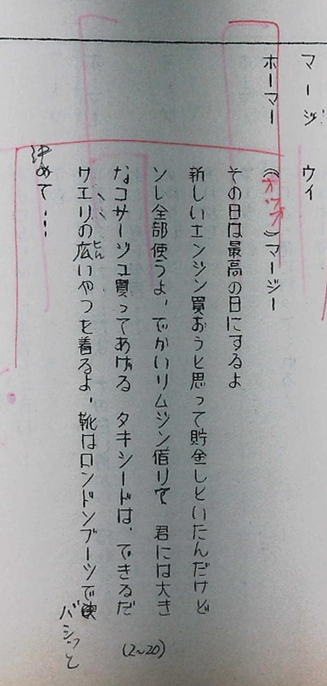 マージ　ウィ
ホーマー　（オフ）マージー
その日は最高の日にするよ
新しいエンジン買おうと思って貯金しといたんだけど
ソレ全部使うよ、でかいリムジン借りて　君には大き
なコサージュ買ってあげる　タキシードは、できるだ
けエリの広いやつを着るよ、靴はロンドンブーツで
バシッと
決めて・・・
(2~20)